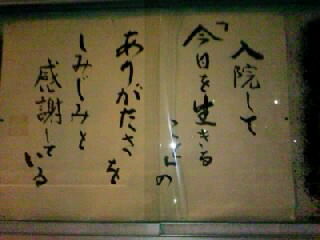 入院して
「今日を生きる
ことの
ありがたさを
しみじみと
感謝して
いる